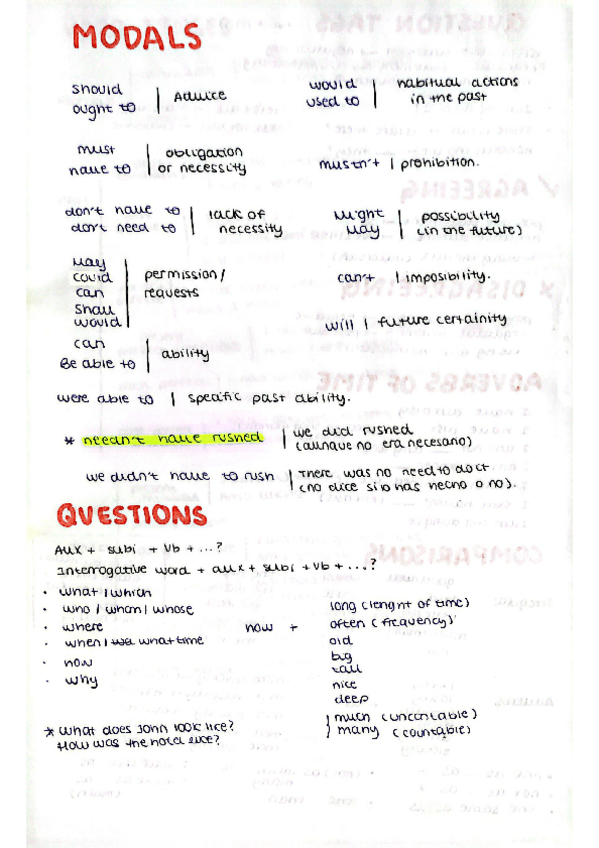 MODALS
should
ought to | Advice
would
used to | habitual actions
in the past
must
have to | obligation
or necessity
mustn't | prohibition.
don't have to
don't need to | lack of
necessity
Might
May | possibility
(in the future)
May
could
can
shall
would | permission/
requests
can't | imposibility.
will | future certainity
can
Be able to | ability
were able to | specific past ability.
* needn't have rushed | we did rushed
(aunque no era necesario)
we didn't have to rush | There was no need to do it
(no dice si lo has hecho o no).
QUESTIONS
Aux + subj + vb + ...?
Interrogative word + aux + subj + vb + ...?
· what / which
· who / whom / whose
· where
· when / what time
· how
· why
how +
long (lenght of time)
often (frequency)
old
big
tall
nice
deep
much (uncontable)
many (countable)
* What does John look like?
How was the hotel like?